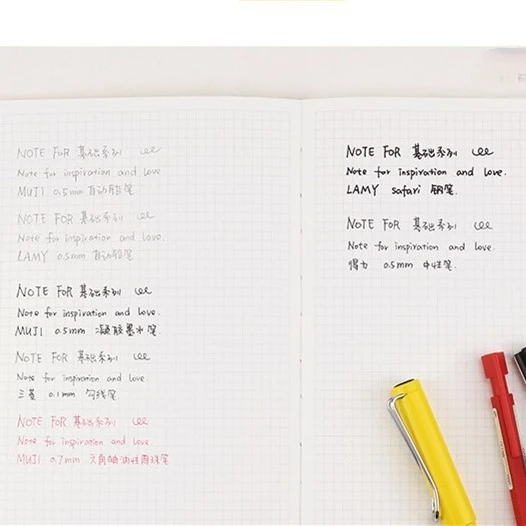 NOTE FOR 基础系列
Note for inspiration and love.
MUJI 0.5mm 自动铅笔
NOTE FOR 基础系列
Note for inspiration and love.
LAMY 0.5mm 自动铅笔
NOTE FOR 基础系列
Note for inspiration and love.
MUJI 0.5mm 凝胶墨水笔
NOTE FOR 基础系列
Note for inspiration and love.
三菱 0.1mm 勾线笔
NOTE FOR 基础系列
Note for inspiration and love
MUJI 0.7mm 六角轴油性圆珠笔
NOTE FOR 基础系列
Note for inspiration and love.
LAMY safari 钢笔
NOTE FOR 基础系列
Note for inspiration and love.
得力 0.5mm 中性笔.